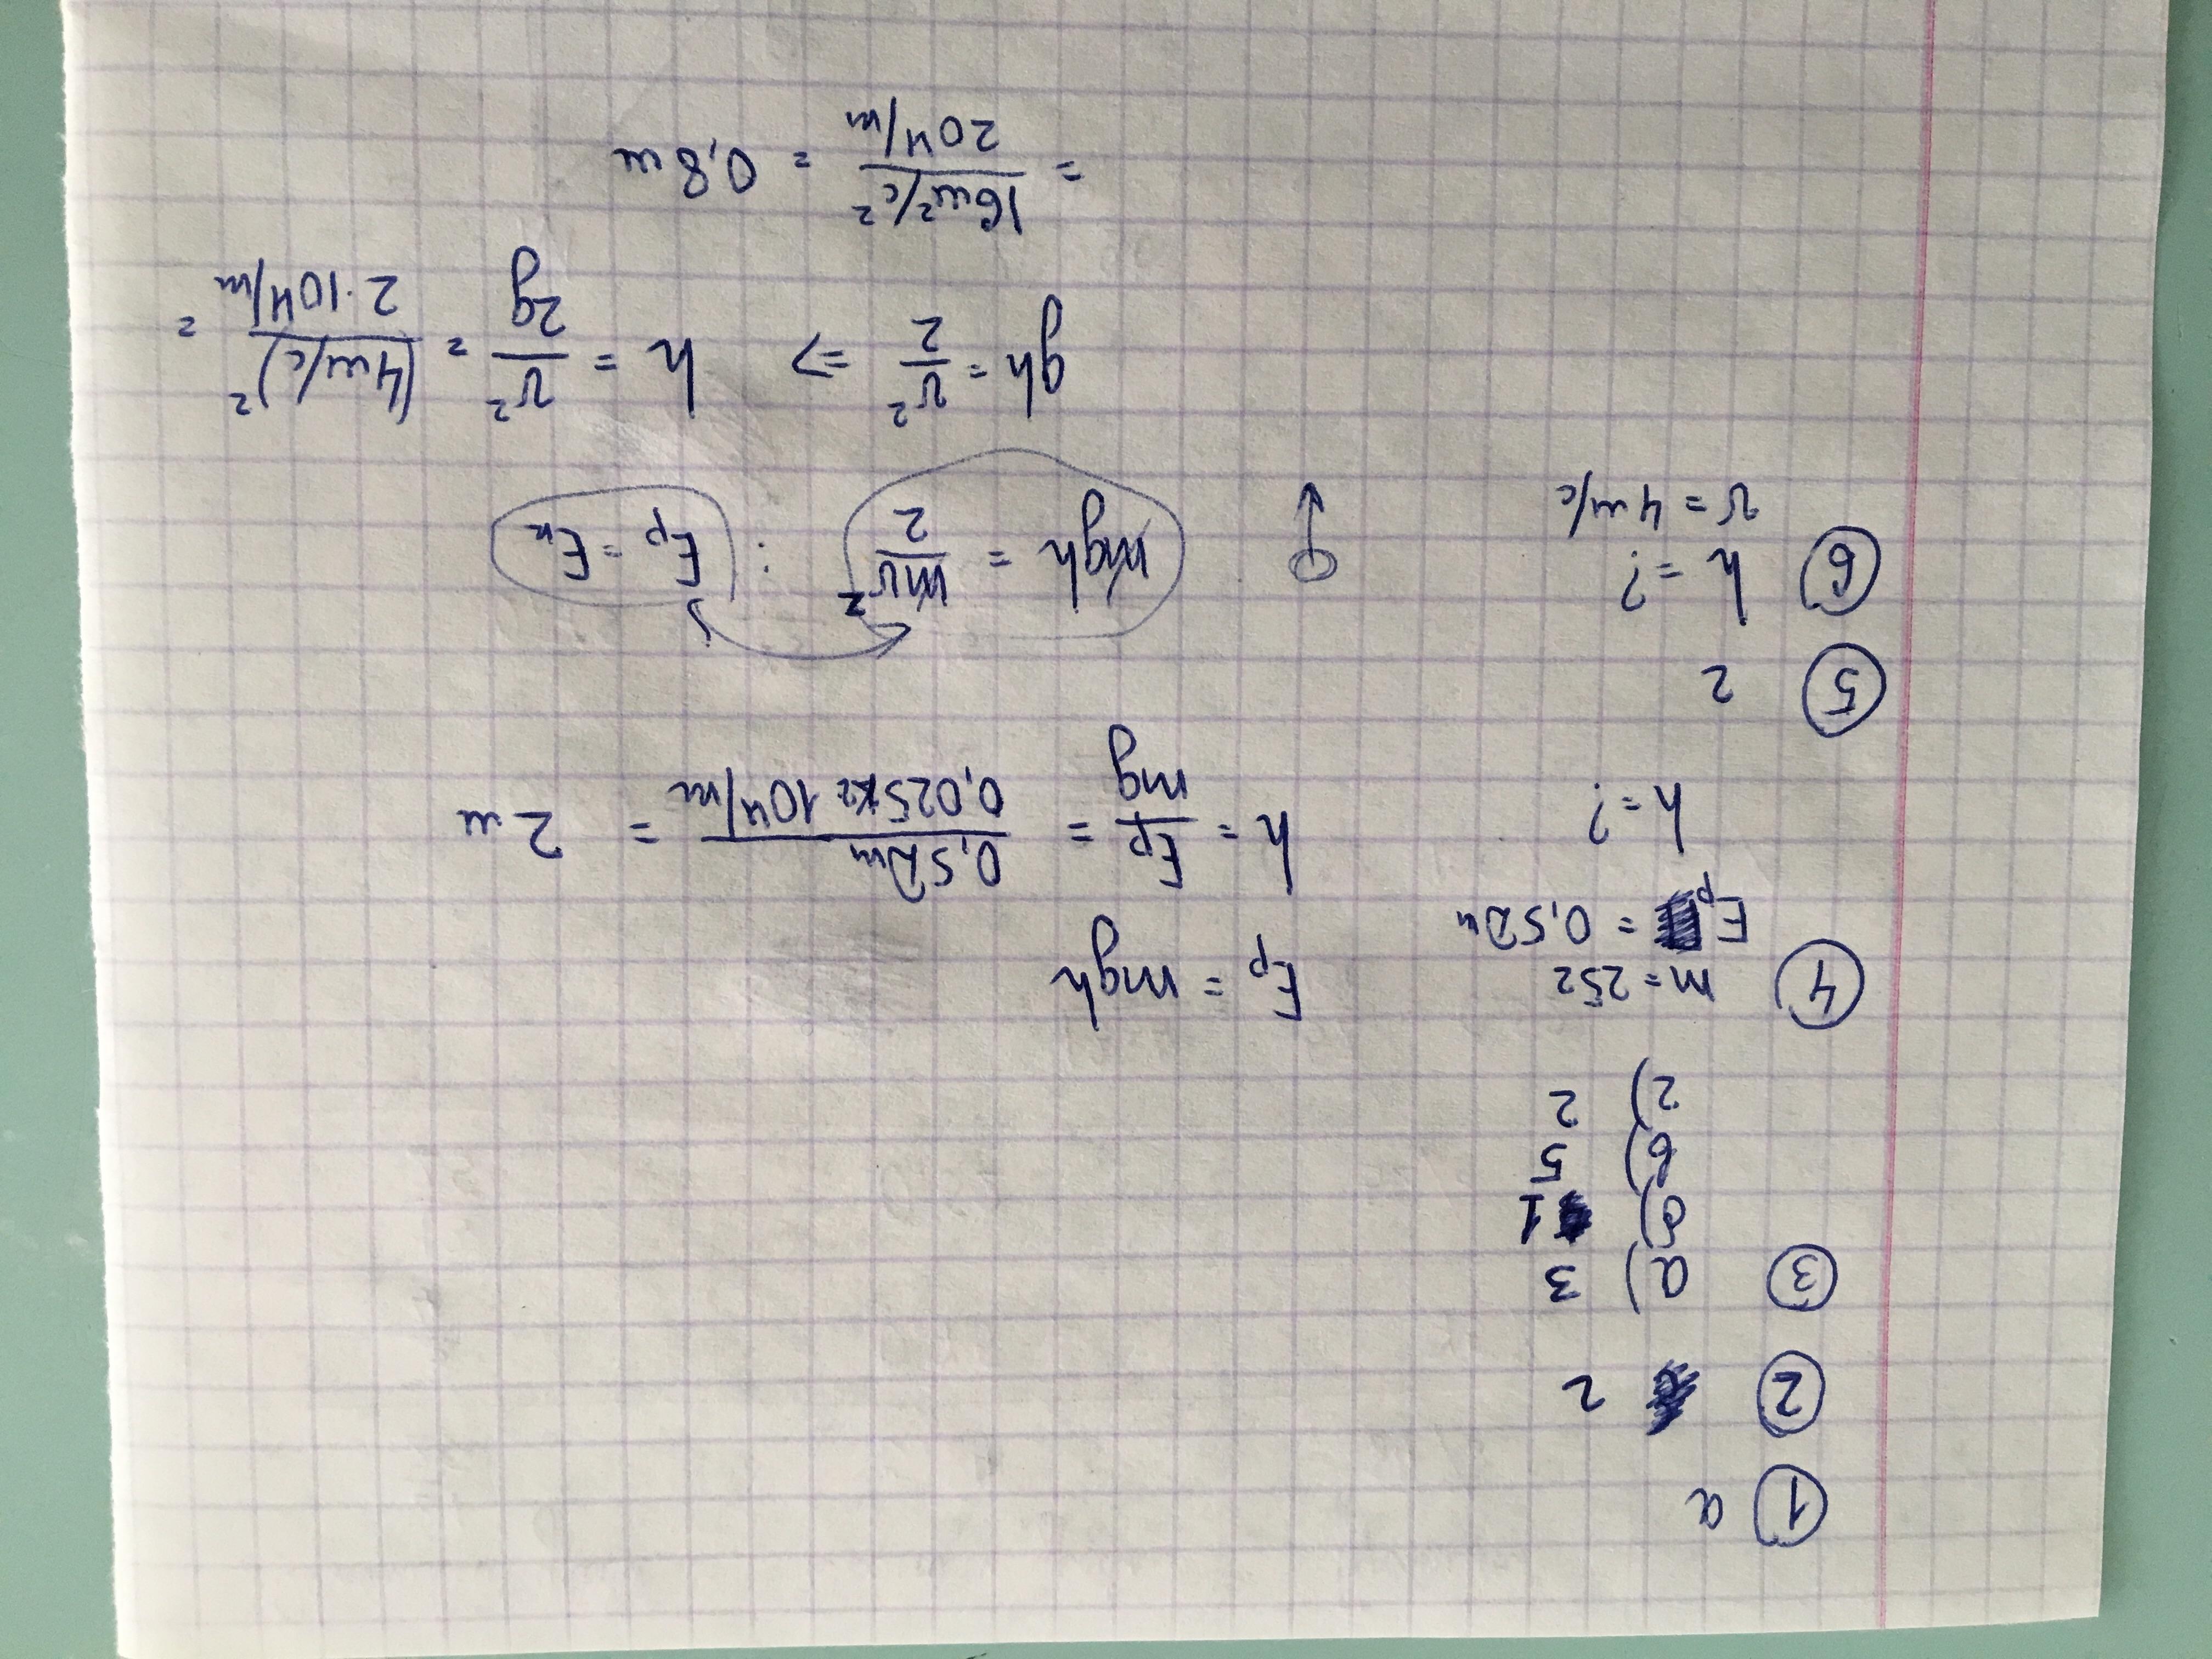 ① а
② 2
③ а) 3
б) 1
в) 5
г) 2
④ m = 25г
Eр = 0,5Дж
h = ?
Eр = mgh
h = Eр/mg = 0,5Дж/0,025кг 10н/м = 2м
⑤ 2
⑥ h = ?
v = 4м/с
mgh = mv²/2 : Eр = Eк
gh = v²/2 ⇒ h = v²/2g = (4м/с)²/2·10н/м =
= 16м²/с²/20н/м = 0,8м